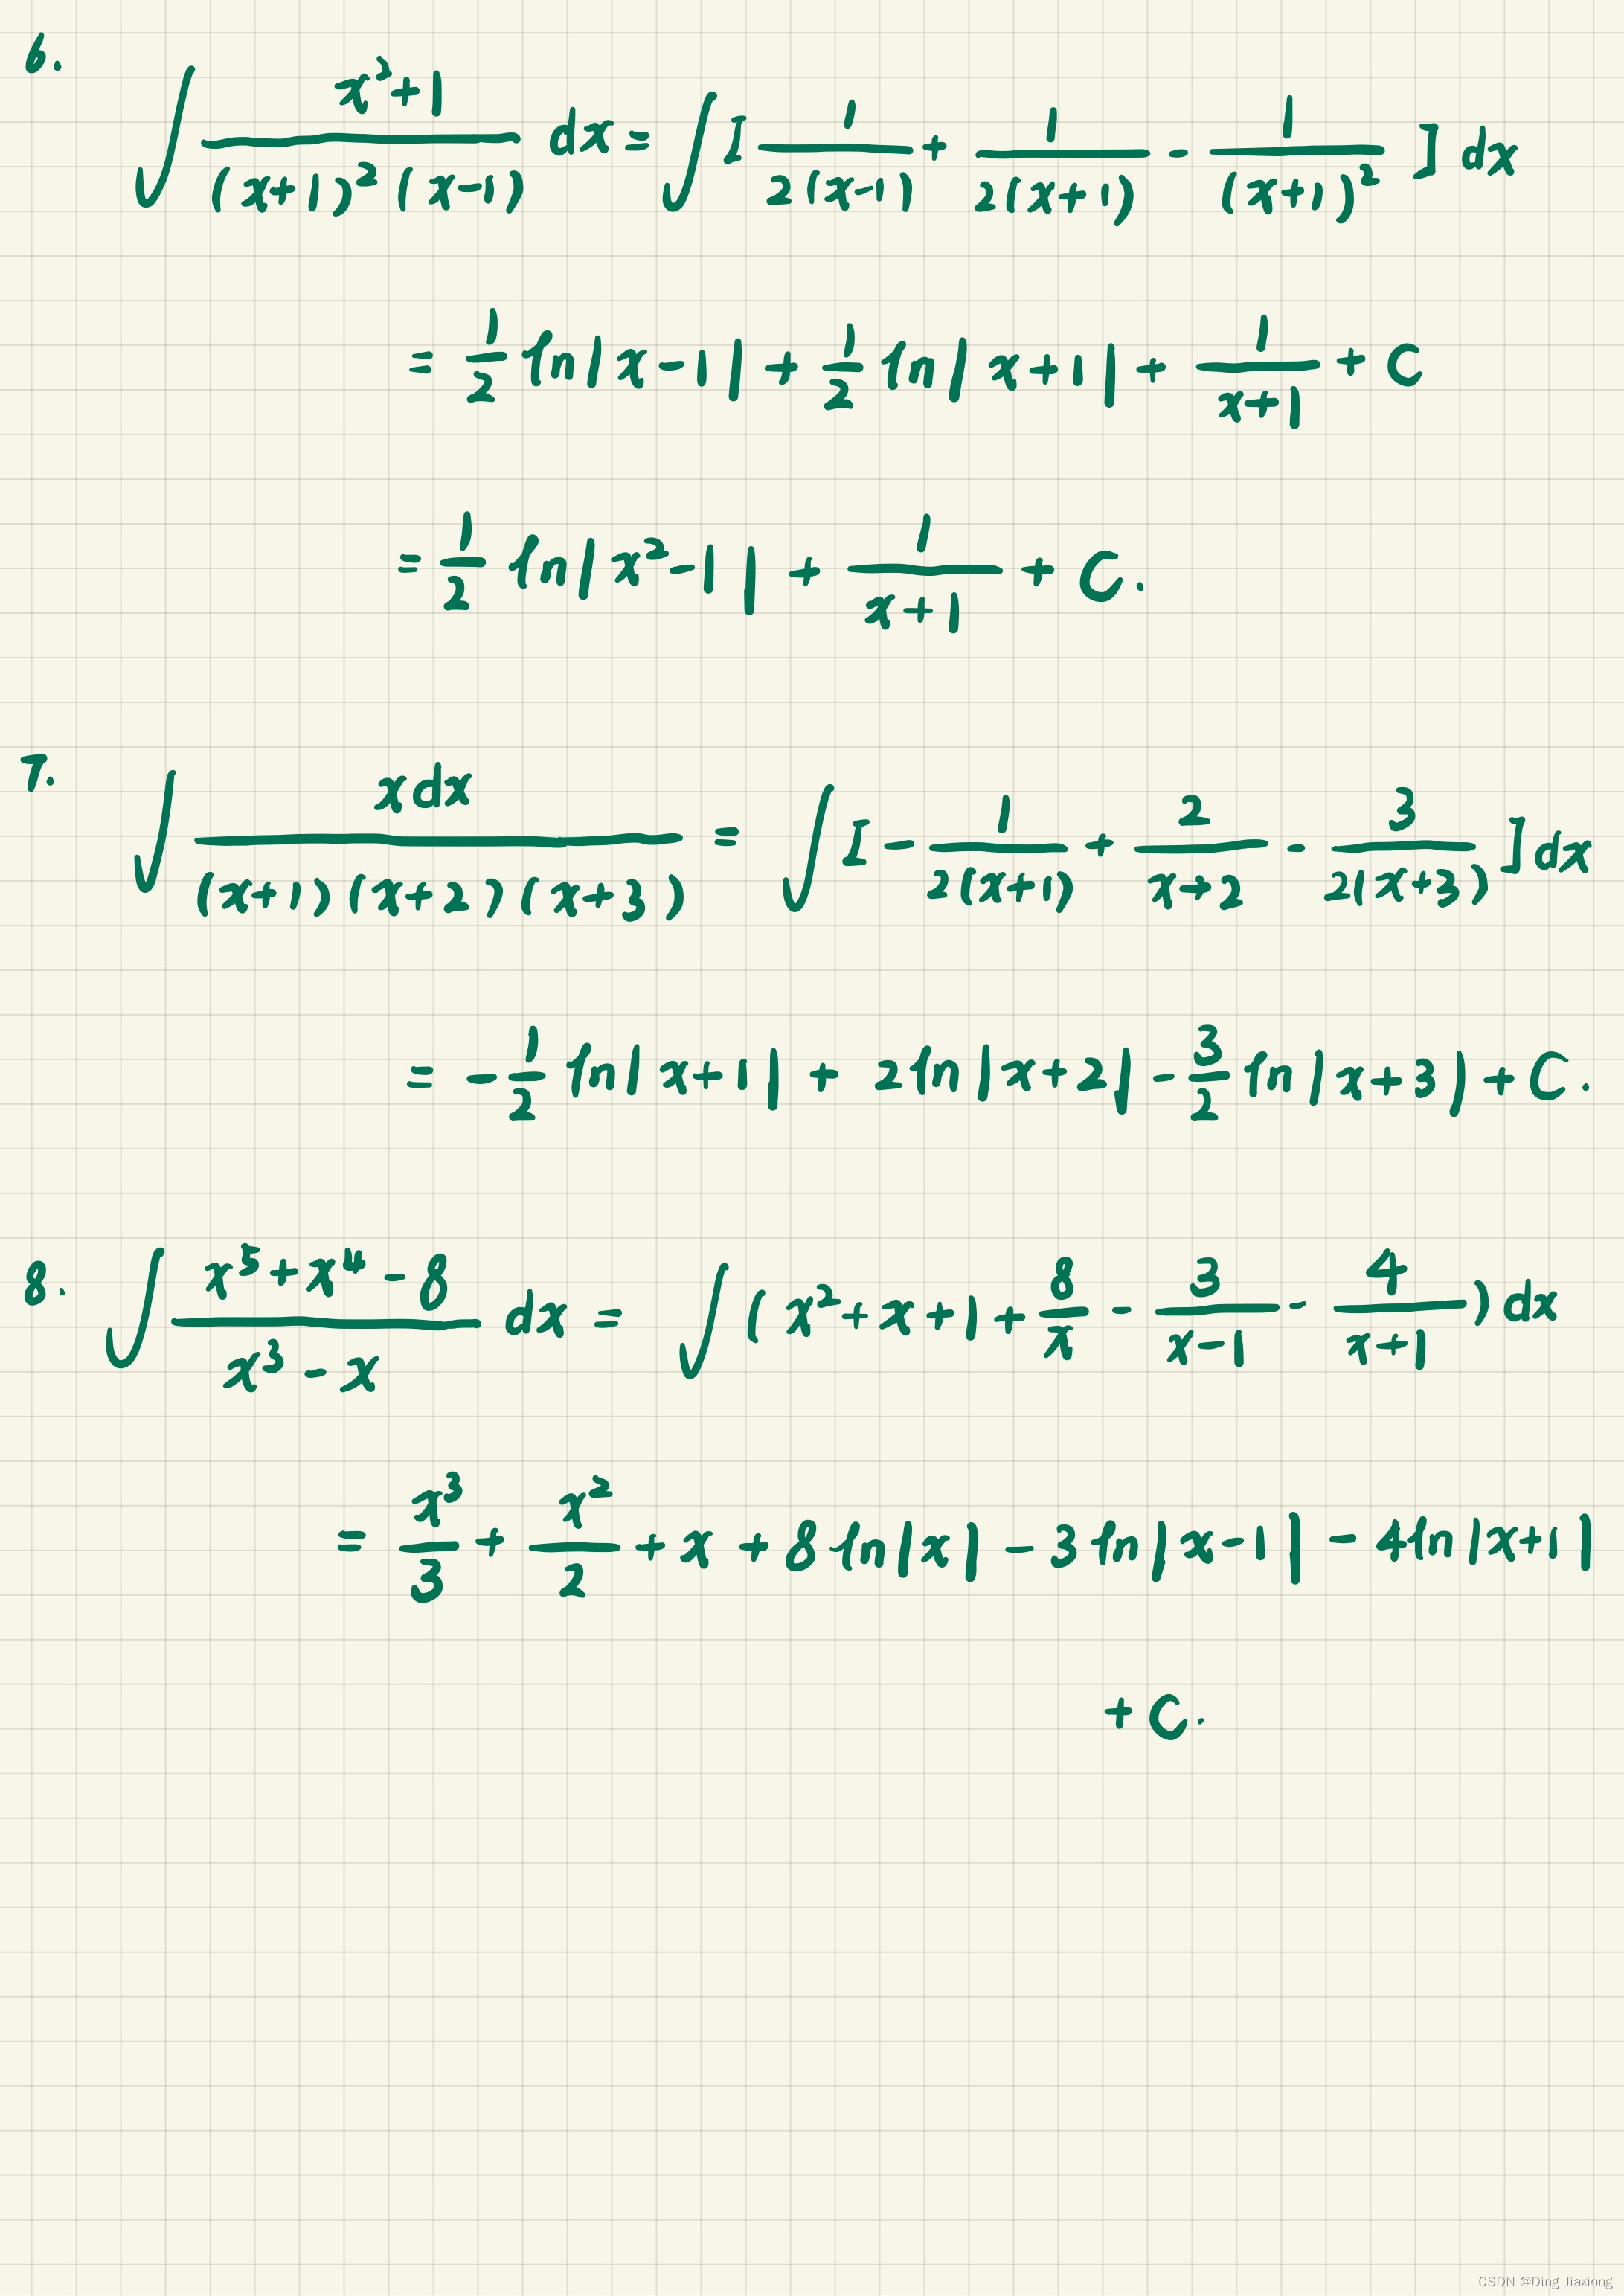 6. ∫ (x²+1)/((x+1)²(x-1)) dx = ∫ [1/(2(x-1)) + 1/(2(x+1)) - 1/(x+1)²] dx
= 1/2 ln|x-1| + 1/2 ln|x+1| + 1/(x+1) + C
= 1/2 ln|x²-1| + 1/(x+1) + C.
7. ∫ xdx/((x+1)(x+2)(x+3)) = ∫ [-1/(2(x+1)) + 2/(x+2) - 3/(2(x+3))] dx
= -1/2 ln|x+1| + 2ln|x+2| - 3/2 ln|x+3| + C.
8. ∫ (x⁵+x⁴-8)/(x³-x) dx = ∫ (x²+x+1+8/x - 3/(x-1) - 4/(x+1)) dx
= x³/3 + x²/2 + x + 8ln|x| - 3ln|x-1| - 4ln|x+1|
+ C.
CSDN @Ding Jiaxiong